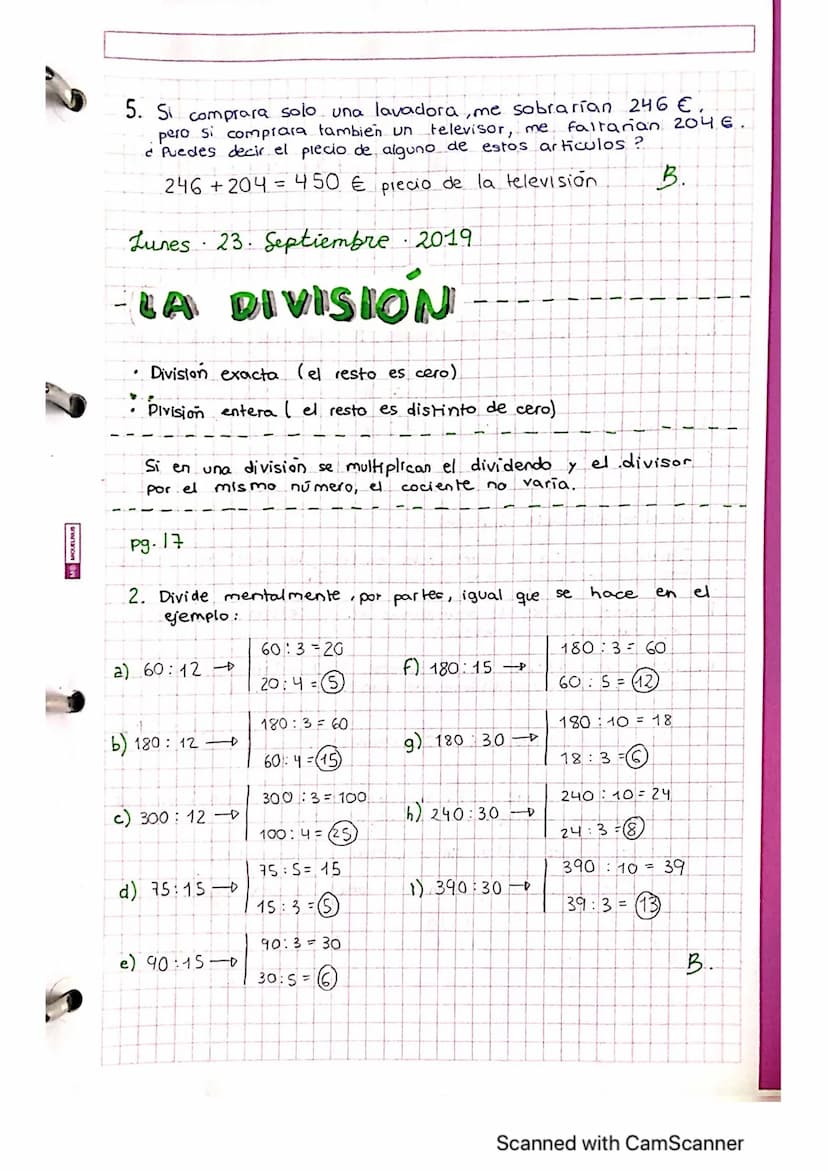 5. Si comprara solo una lavadora, me sobrarían 246 €,
pero si comprara también un televisor, me faltarían 204 €.
¿Puedes decir el precio de alguno de estos artículos?
246 + 204 = 450 € precio de la televisión B.
Lunes · 23 · Septiembre · 2019
- LA DIVISIÓN
· División exacta (el resto es cero)
· División entera ( el resto es distinto de cero)
Si en una división se multiplican el dividendo y el divisor
por el mismo número, el cociente no varía.
MIQUELRIUS
pg. 17
2. Divide mentalmente, por partes, igual que se hace en el
ejemplo:
a) 60 : 12 → 60 : 3 = 20
20 : 4 = 5
b) 180 : 12 → 180 : 3 = 60
60 : 4 = 15
c) 300 : 12 → 300 : 3 = 100
100 : 4 = 25
d) 75 : 15 → 75 : 5 = 15
15 : 3 = 5
e) 90 : 15 → 90 : 3 = 30
30 : 5 = 6
f) 180 : 15 → 180 : 3 = 60
60 : 5 = 12
g) 180 : 30 → 180 : 10 = 18
18 : 3 = 6
h) 240 : 30 → 240 : 10 = 24
24 : 3 = 8
i) 390 : 30 → 390 : 10 = 39
39 : 3 = 13
B.
Scanned with CamScanner